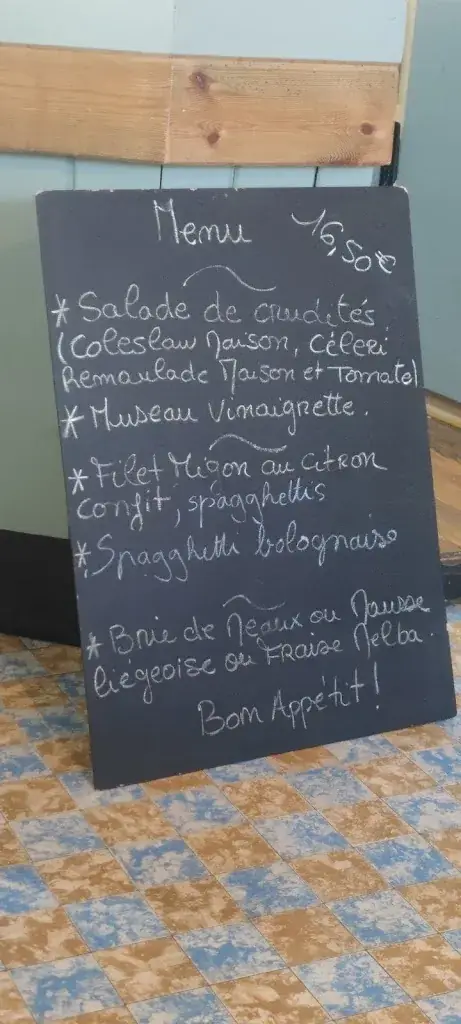 Menu 16,50€
* Salade de crudités
(Coleslaw Maison, Céleri
Remoulade Maison et Tomate)
* Museau Vinaigrette.
* Filet Migon au Citron
Confit, spagghettis
* Spagghetti bolognaise
* Brie de Meaux ou Mousse
liégeoise ou Fraise Melba.
Bon Appétit!